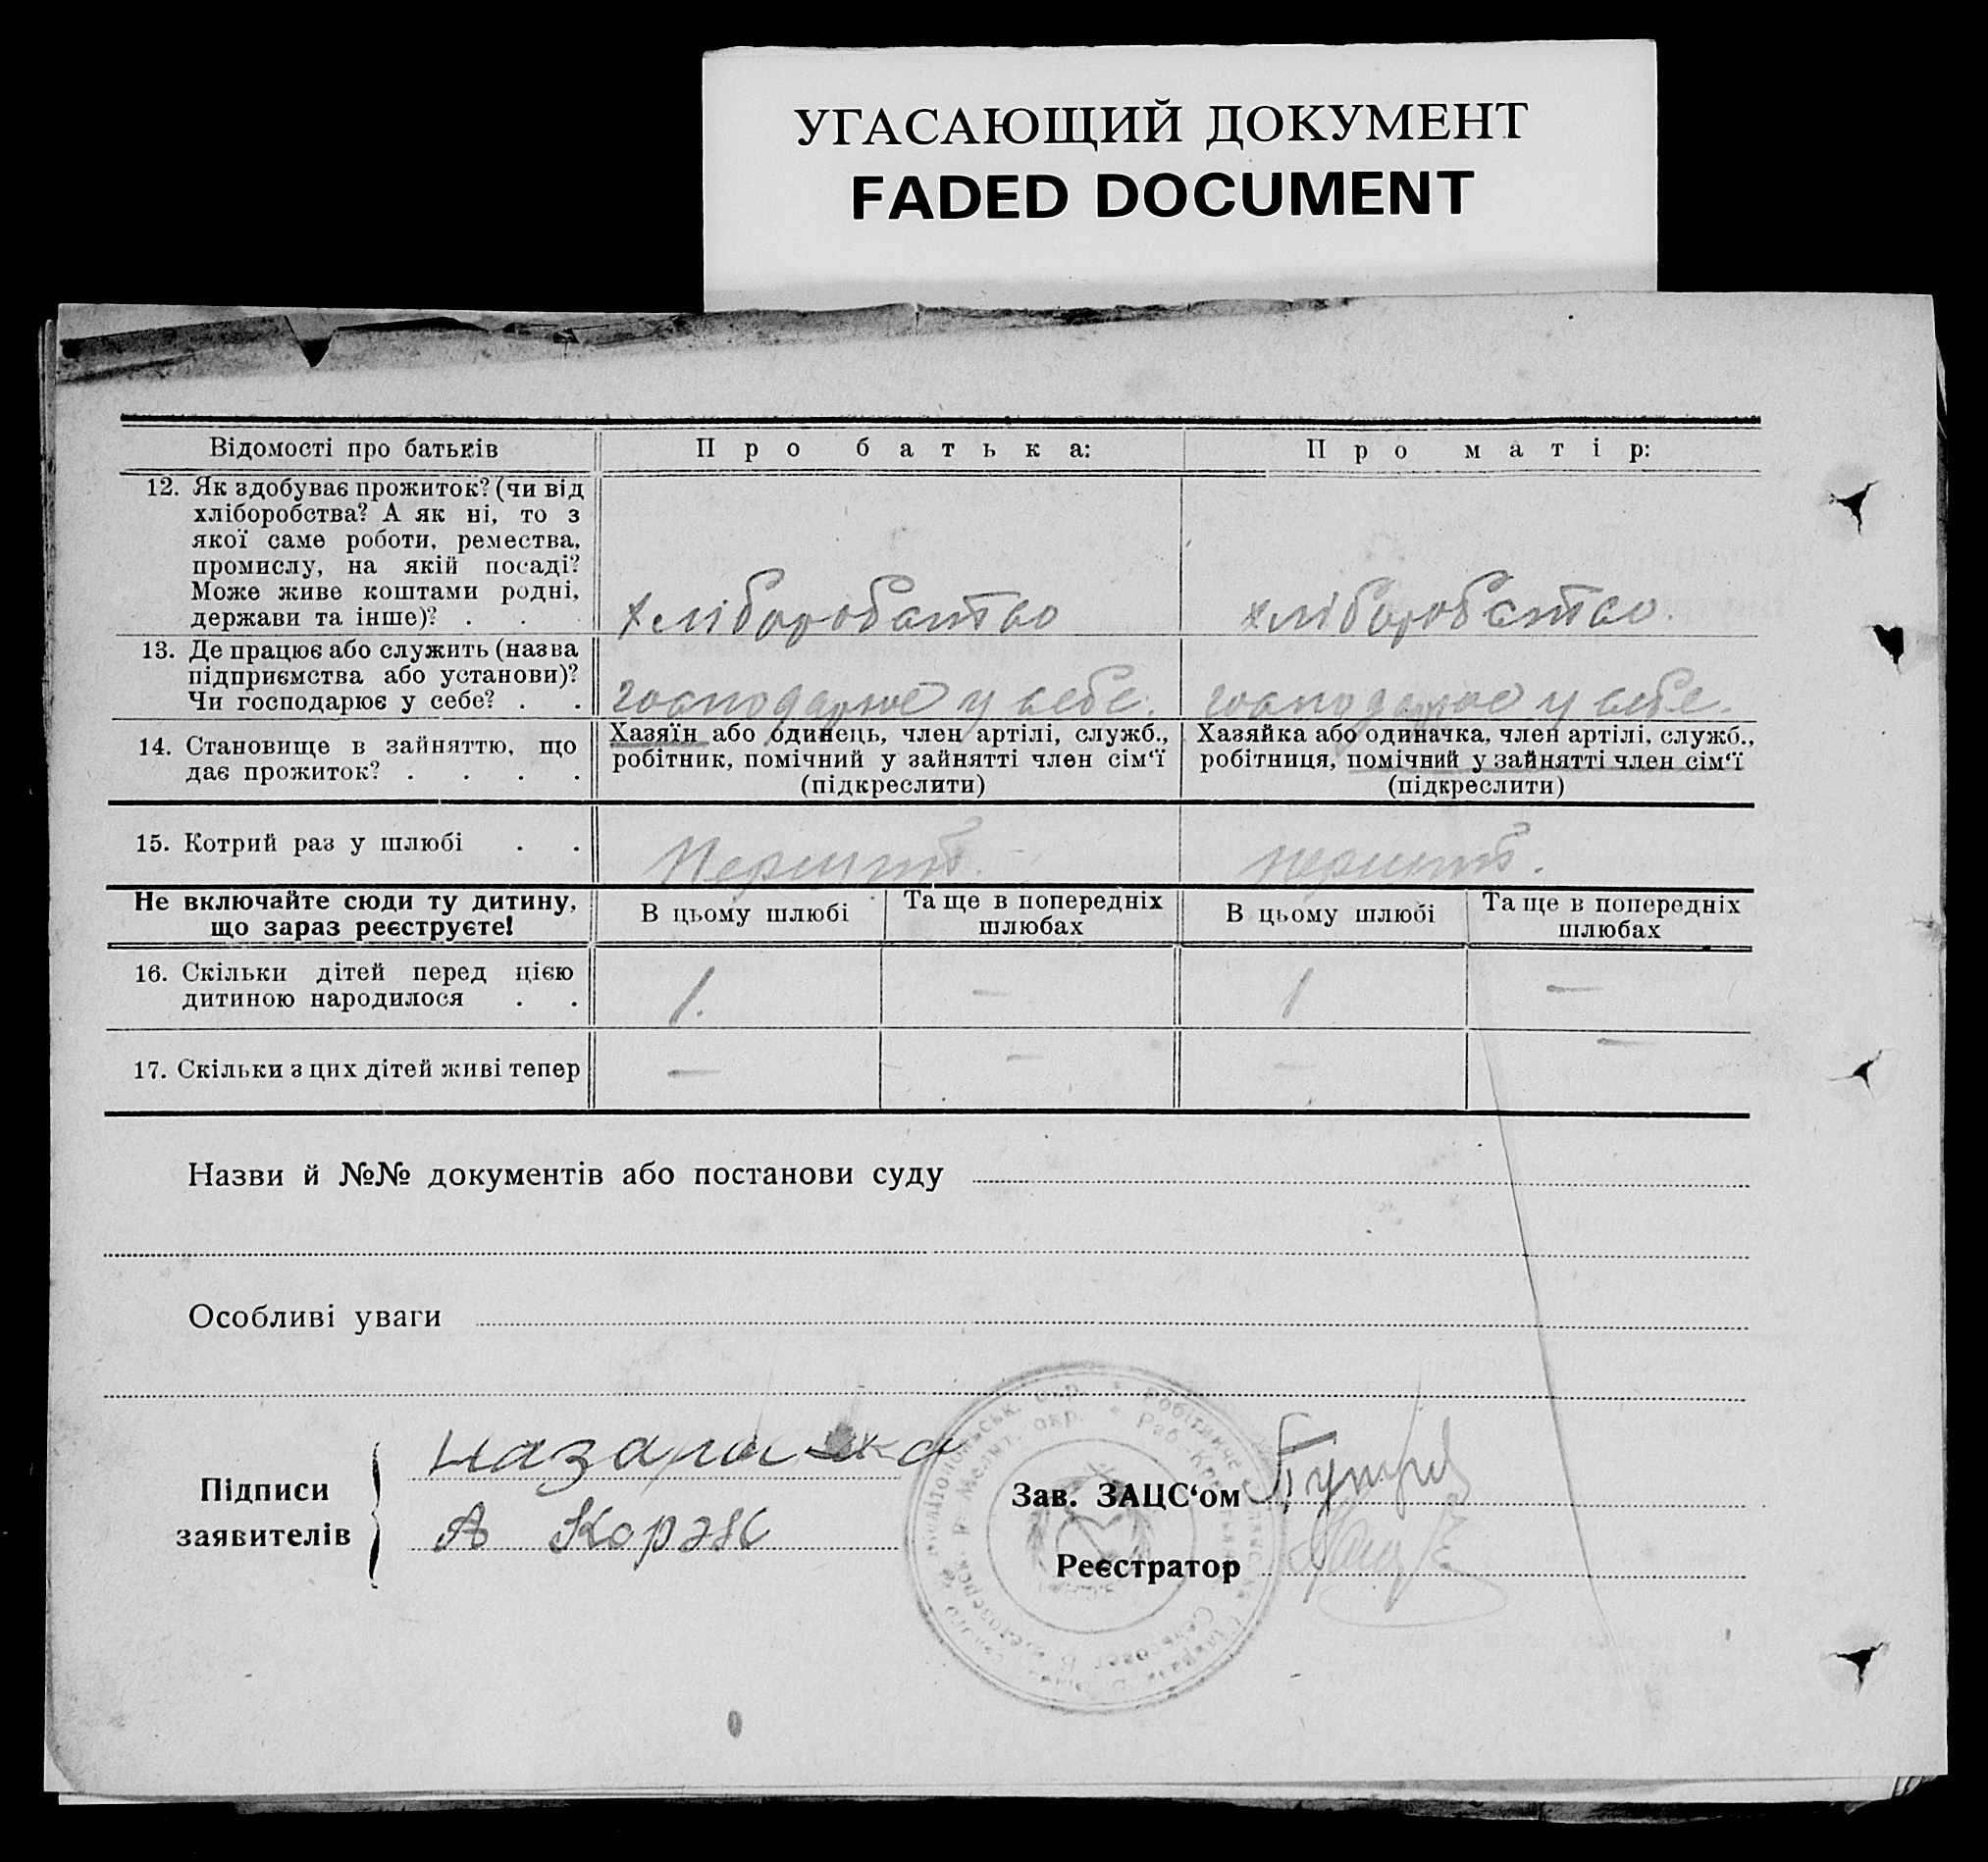 УГАСАЮЩИЙ ДОКУМЕНТ
FADED DOCUMENT
Відомості про батьків
Про батька:
Про матір:
12. Як здобуває прожиток? (чи від
хліборобства? А як ні, то з
якої саме роботи, ремества,
промислу, на якій посаді?
Може живе коштами родні,
держави та інше)? . .
хліборобство
хліборобство.
13. Де працює або служить (назва
підприємства або установи)?
Чи господарює у себе? . .
господарює у себе.
господарює у себе.
14. Становище в зайняттю, що
дає прожиток? . . . .
Хазяїн або одинець, член артілі, служб.,
робітник, помічний у зайнятті член сім‘ї
(підкреслити)
Хазяйка або одиначка, член артілі, служб.,
робітниця, помічний у зайнятті член сім‘ї
(підкреслити)
15. Котрий раз у шлюбі . .
Не включайте сюди ту дитину,
що зараз реєструєте!
В цьому шлюбі
Та ще в попередніх
шлюбах
В цьому шлюбі
Та ще в попередніх
шлюбах
16. Скільки дітей перед цією
дитиною народилося . .
1.
—
1
—
17. Скільки з цих дітей живі тепер
—
—
—
—
Назви й №№ документів або постанови суду
Особливі уваги
Підписи
заявителів
А Корж
Зав. ЗАЦС‘ом
Реєстратор